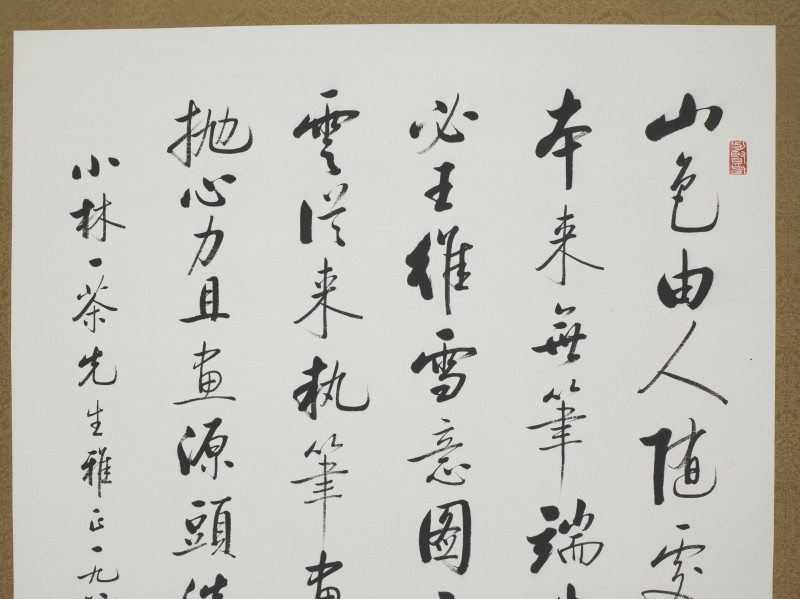 山色由人随處
本来無筆端
必王維雪意图
雲從来執筆畫
抛心力且畫源頭
小林一茶先生雅正一九